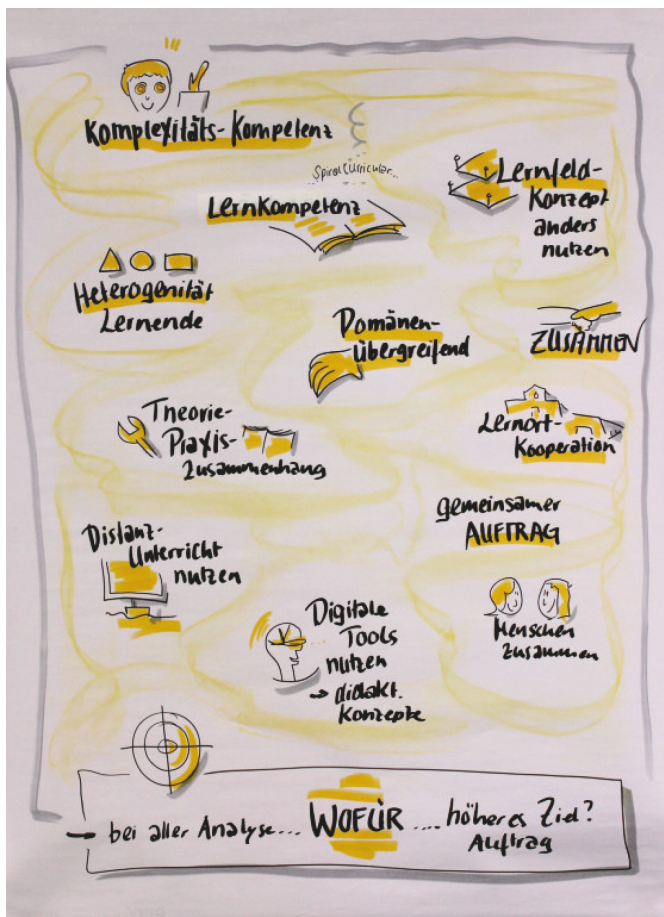 Komplexitäts-Kompetenz
Spiralcurricular...
Lernkompetenz
Lernfeld-
Konzept
anders
nutzen
Heterogenität
Lernende
Domänen-
übergreifend
ZUSAMMEN
Theorie-
Praxis-
Zusammenhang
Lernort-
Kooperation
gemeinsamer
AUFTRAG
Distanz-
Unterricht
nutzen
Digitale
Tools
nutzen
→ didakt.
Konzepte
Menschen
zusammen
→ bei aller Analyse... WOFÜR .... höheres Ziel?
Auftrag